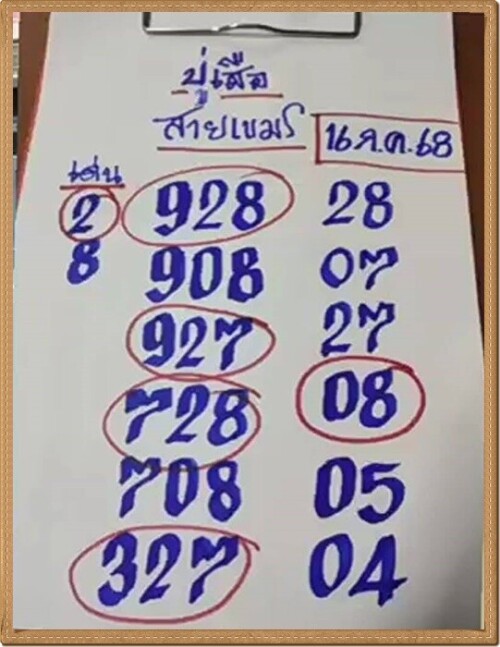 ปู่เสือ
สายเขมร
16 ต.ค. 68
เด่น
2 928 28
8 908 07
927 27
728 08
708 05
327 04